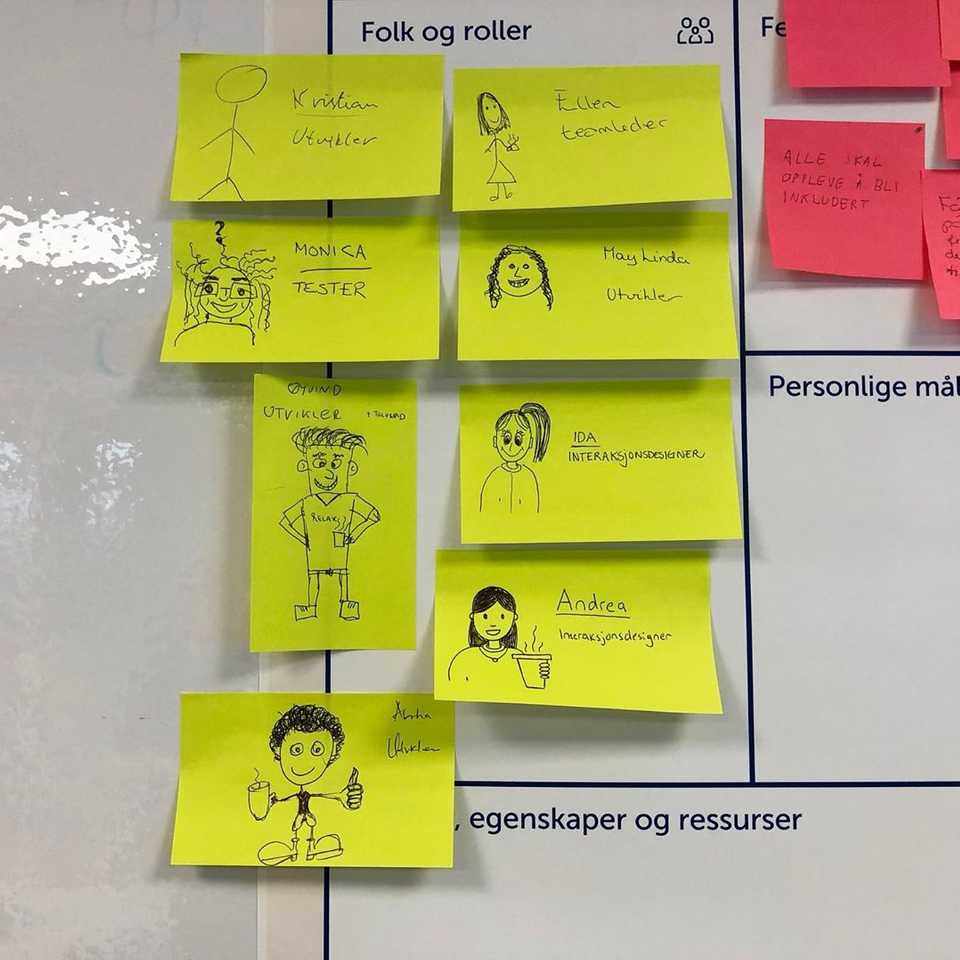 Folk og roller
Kristian
Utvikler
Ellen
teamleder
MONICA
TESTER
?
May Linda
Utvikler
ØYVIND
UTVIKLER
RELAKS
IDA
INTERAKSJONSDESIGNER
Andrea
Interaksjonsdesigner
Utvikler
ALLE SKAL
OPPLEVE Å BLI
INKLUDERT
Personlige mål
, egenskaper og ressurser